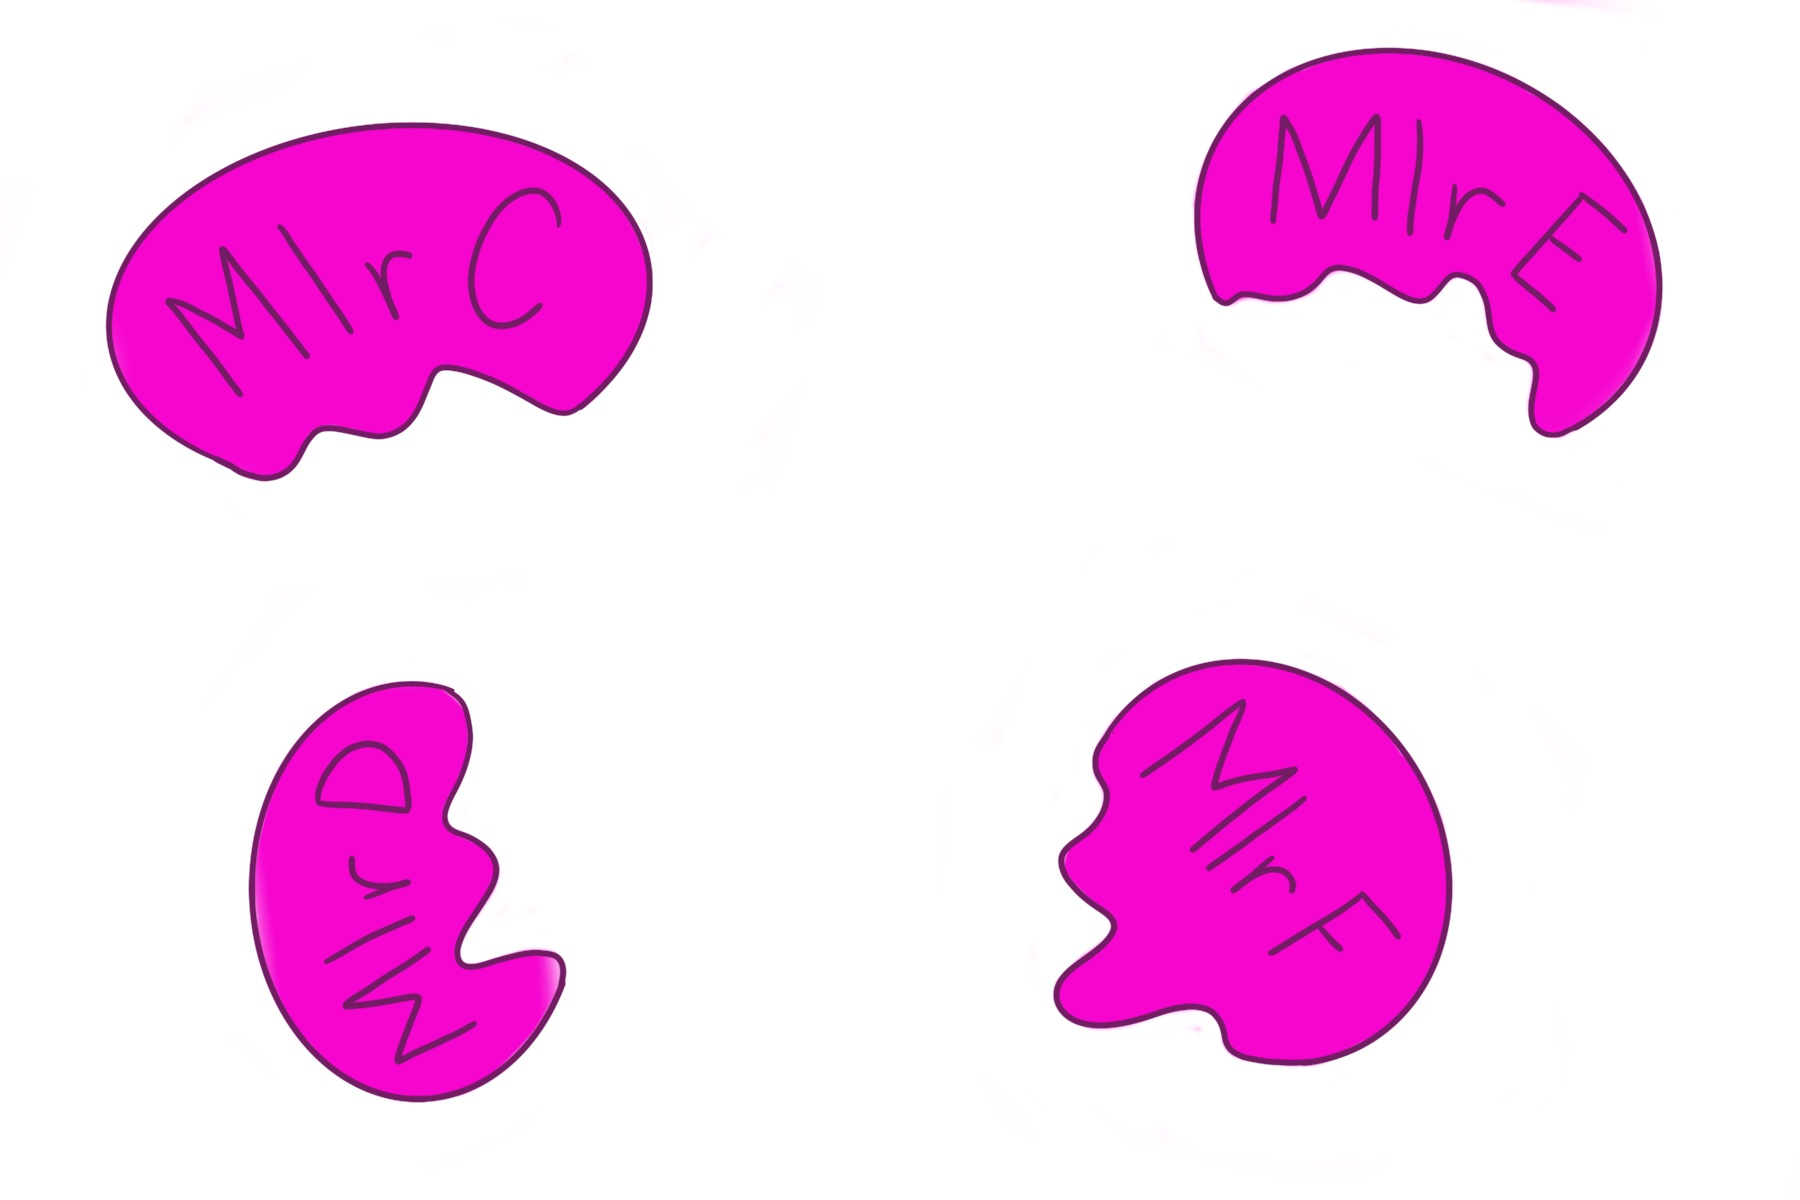 MlrC
MlrE
MlrD
MlrF